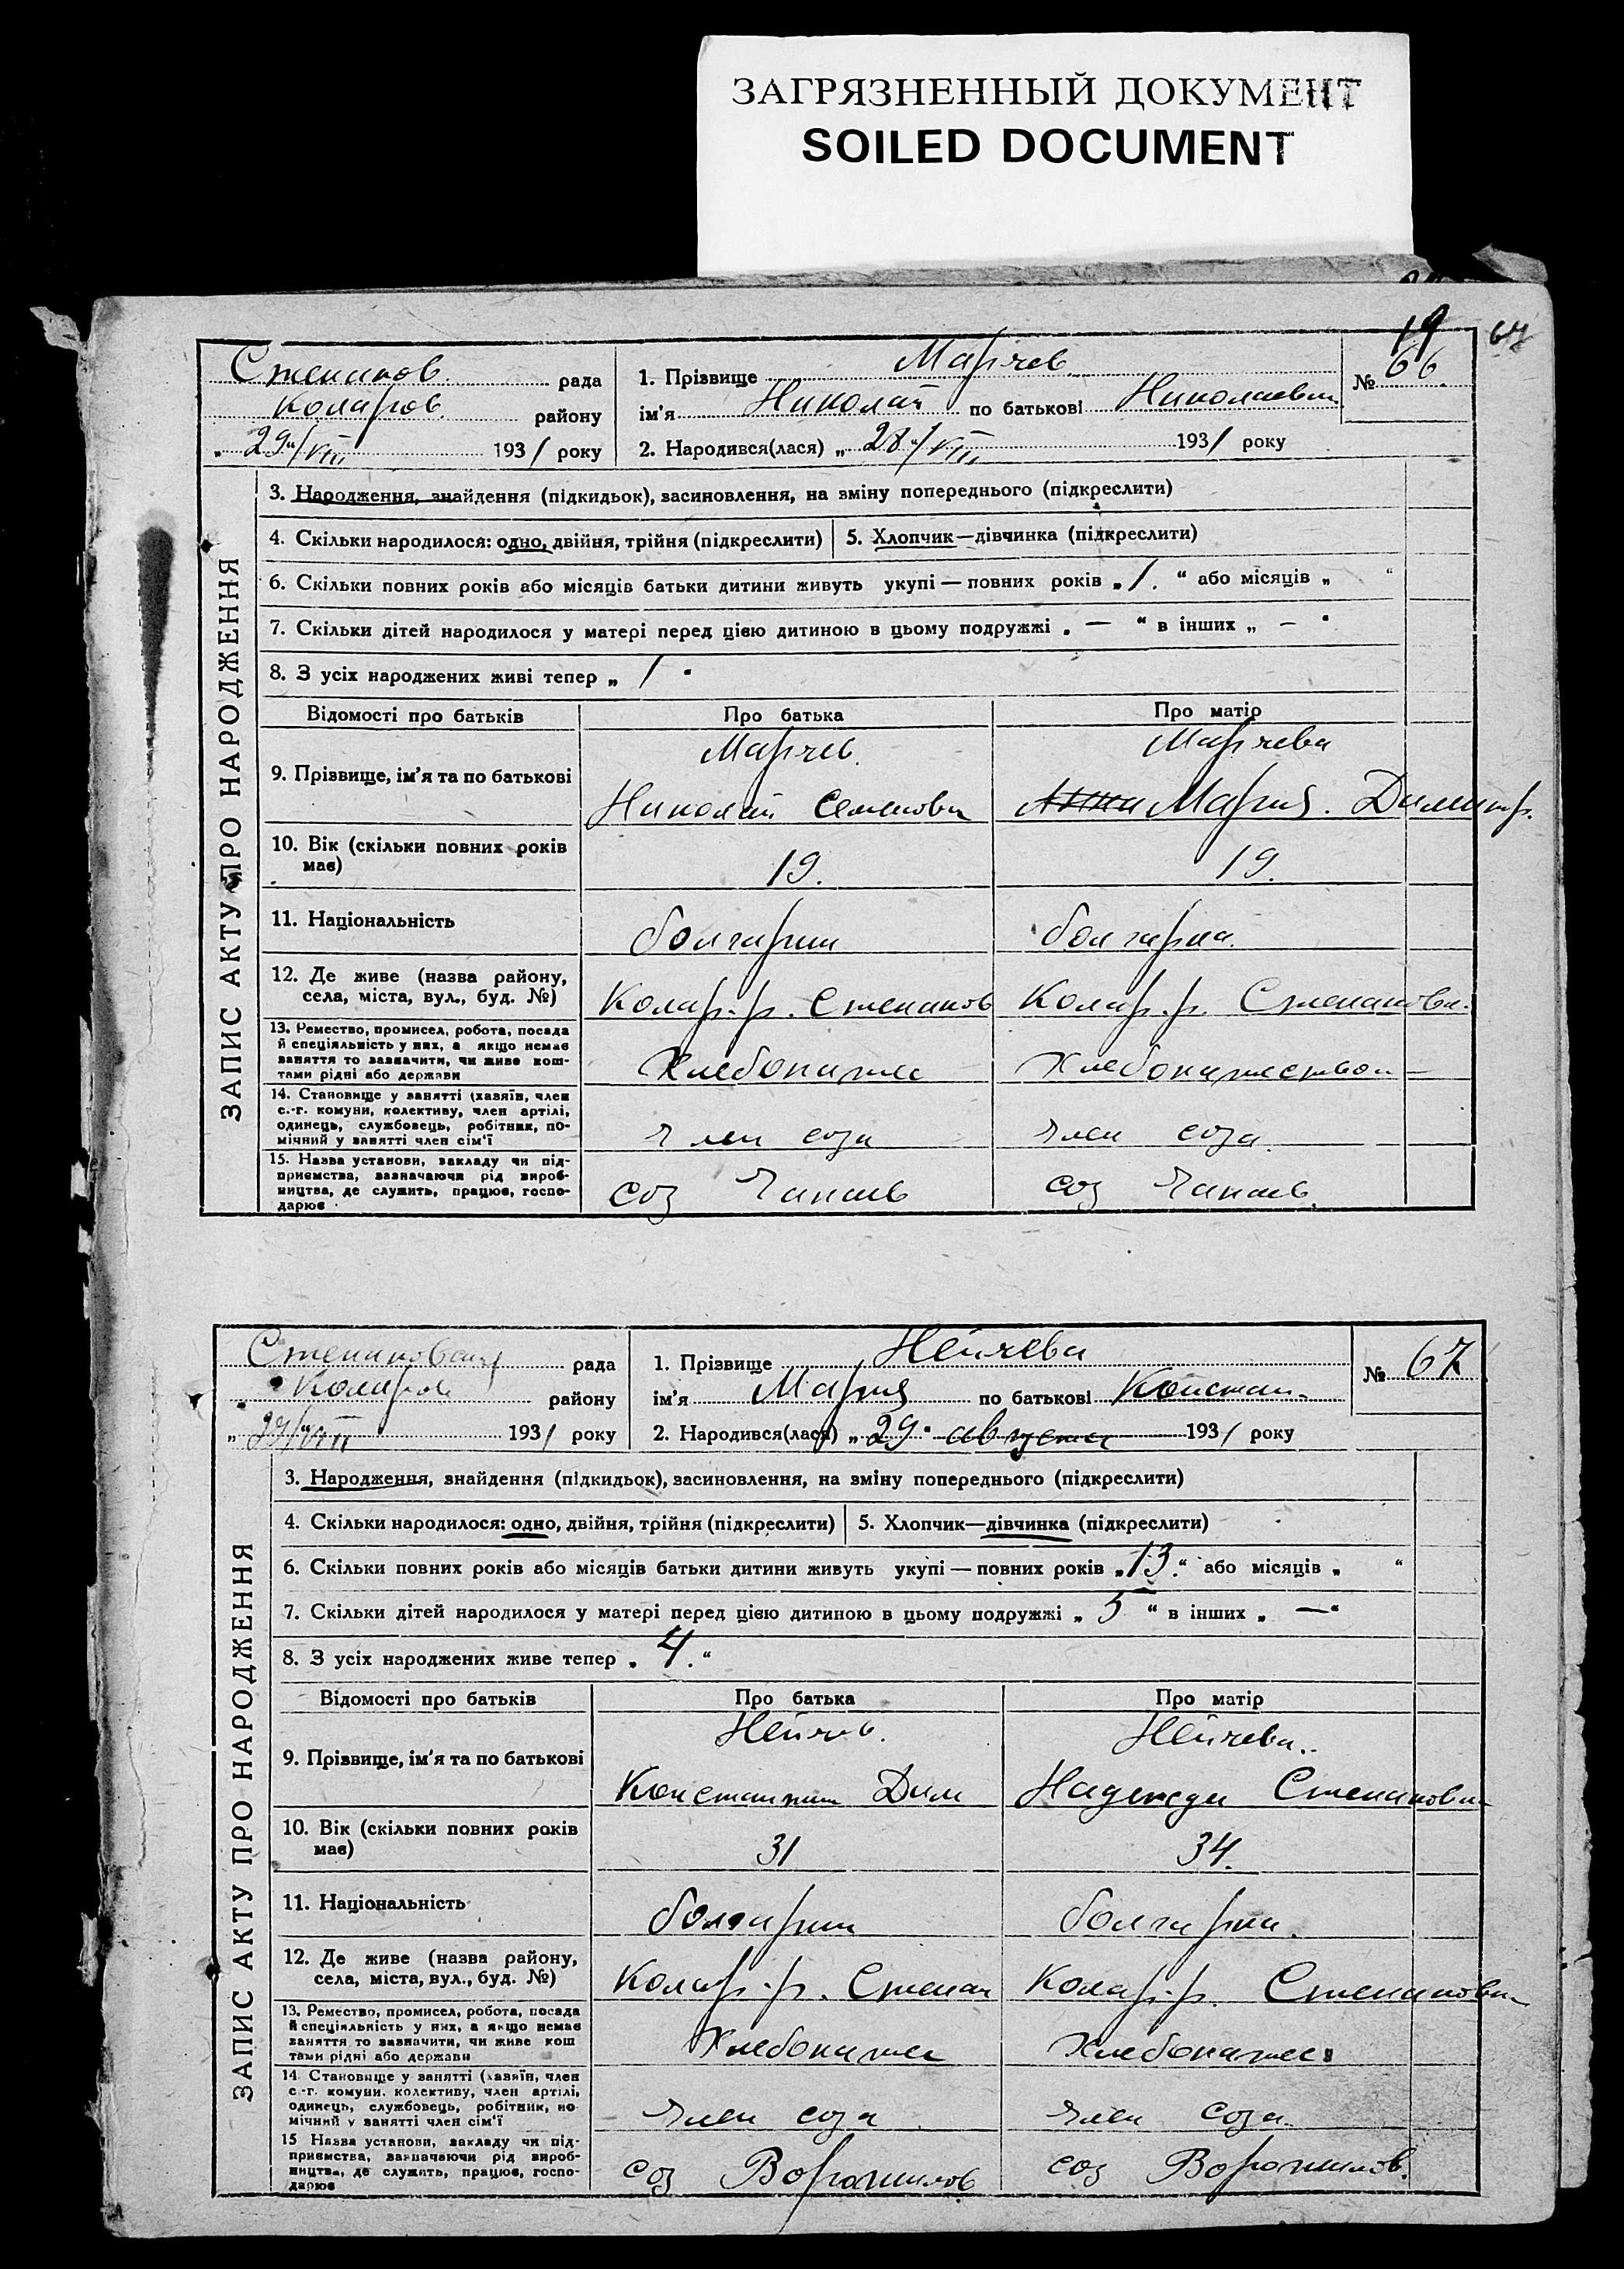 ЗАГРЯЗНЕННЫЙ ДОКУМЕНТ
SOILED DOCUMENT
19 67
Степанов рада
Коларов району
„ 29/VIII 1931 року
1. Прізвище Марчев
ім'я Николай по батькові Николаевич
2. Народився(лася) „ 28/VIII 1931 року
№ 66.
ЗАПИС АКТУ ПРО НАРОДЖЕННЯ
3. Народження, знайдення (підкидьок), засиновлення, на зміну попереднього (підкреслити)
4. Скільки народилося: одно, двійня, трійня (підкреслити) 5. Хлопчик—дівчинка (підкреслити)
6. Скільки повних років або місяців батьки дитини живуть укупі — повних років „ 1. “ або місяців „ “
7. Скільки дітей народилося у матері перед цією дитиною в цьому подружжі „ — “ в інших „ — “
8. З усіх народжених живі тепер „ 1 “
Відомості про батьків Про батька Про матір
9. Прізвище, ім'я та по батькові
Марчев. Марчева
Николай Семенович Мария. Димитр.
10. Вік (скільки повних років має) 19. 19.
11. Національність болгарин болгарка.
12. Де живе (назва району, села, міста, вул., буд. №)
Колар. р. Степанов Колар. р. Степановка.
13. Ремество, промисел, робота, посада
й спеціяльність у них, а якщо немає
заняття то зазначити, чи живе кош-
тами рідні або держави
Хлебопашес Хлебопашество
14. Становище у занятті (хазяїн, член
с.-г. комуни, колективу, член артілі,
одинець, службовець, робітник, по-
мічний у занятті член сім'ї
член соза член соза
15. Назва установи, закладу чи під-
приємства, зазначаючи рід вироб-
ництва, де служить, працює, госпо-
дарює
соз Чапаев соз Чапаев.
рада
Коларов району
„ 29/VIII 1931 року
1. Прізвище Нейчева
ім'я Мария по батькові Констан.
2. Народився(лася) „ 29 “ августа 1931 року
№ 67
ЗАПИС АКТУ ПРО НАРОДЖЕННЯ
3. Народження, знайдення (підкидьок), засиновлення, на зміну попереднього (підкреслити)
4. Скільки народилося: одно, двійня, трійня (підкреслити) 5. Хлопчик—дівчинка (підкреслити)
6. Скільки повних років або місяців батьки дитини живуть укупі — повних років „ 13. “ або місяців „ “
7. Скільки дітей народилося у матері перед цією дитиною в цьому подружжі „ 5 “ в інших „ — “
8. З усіх народжених живе тепер „ 4. “
Відомості про батьків Про батька Про матір
9. Прізвище, ім'я та по батькові
Нейчев. Нейчева.
Константин Дим Надежда Степановна
10. Вік (скільки повних років має) 31 34.
11. Національність болгарин болгарка.
12. Де живе (назва району, села, міста, вул., буд. №)
Колар. р. Степан Колар. р. Степановка
13. Ремество, промисел, робота, посада
й спеціяльність у них, а якщо немає
заняття то зазначити, чи живе кош
тами рідні або держави
Хлебопашес Хлебопашес
14 Становище у занятті (хазяїн, член
с.-г. комуни, колективу, член артілі,
одинець, службовець, робітник, по
мічний у занятті член сім'ї
член соза член соза.
15 Назва установи, закладу чи під-
приємства, зазначаючи рід вироб-
ництва, де служить, працює, госпо-
дарює
соз Ворошилов соз Ворошилов.